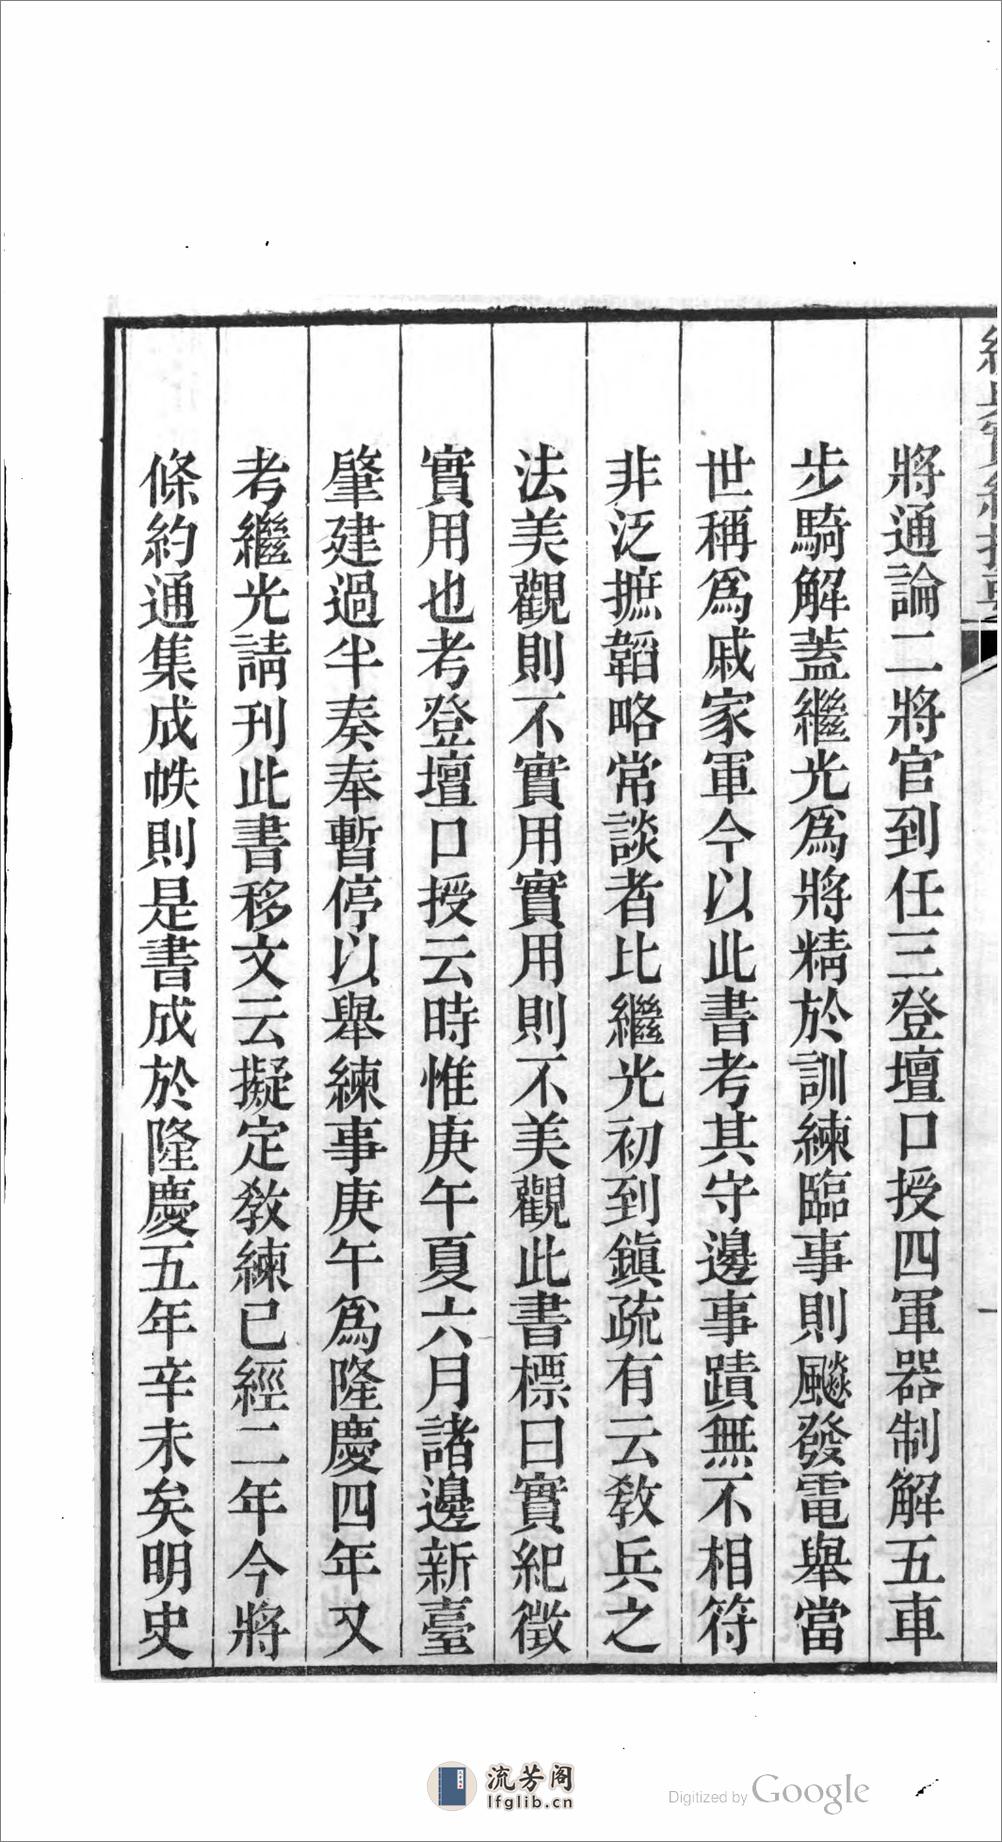 將通論二將官到任三登壇口授四軍器制解五車
步騎解蓋繼光爲將精於訓練臨事則飈發電舉當
世稱爲戚家軍今以此書考其守邊事蹟無不相符
非泛摭韜略常談者比繼光初到鎭疏有云敎兵之
法美觀則不實用實用則不美觀此書標曰實紀徵
實用也考登壇口授云時惟庚午夏六月諸邊新臺
肇建過半奏奉暫停以舉練事庚午爲隆慶四年又
考繼光請刊此書移文云擬定敎練已經二年今將
條約通集成帙則是書成於隆慶五年辛未矣明史
流芳阁
lfglib.cn
Digitized by Google